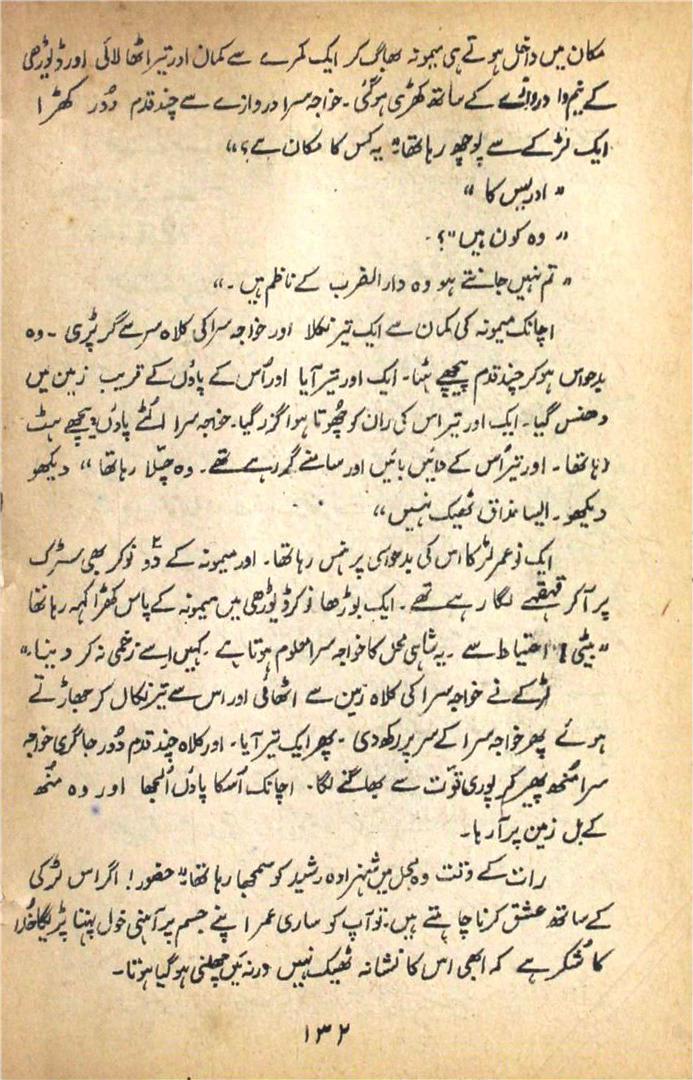 مکان میں داخل ہوتے ہی میمونہ بھاگ کر ایک کمرے سے کمان اور تیر اٹھا لائی اور ڈیوڑھی
کے نیم وا دروازے کے ساتھ کھڑی ہو گئی۔ خواجہ سرا دروازے سے چند قدم دُور کھڑا
ایک لڑکے سے پوچھ رہا تھا: "یہ کس کا مکان ہے؟"
"ادریس کا"
"وہ کون ہیں"؟۔
"تم نہیں جانتے ہو وہ دارالضرب کے ناظم ہیں۔"
اچانک میمونہ کی کمان سے ایک تیر نکلا اور خواجہ سرا کی کلاہ سر سے گر پڑی۔ وہ
بدحواس ہو کر چند قدم پیچھے ہٹا۔ ایک اور تیر آیا اور اُس کے پاؤں کے قریب زمین میں
دھنس گیا۔ ایک اور تیر اس کی ران کو چھُوتا ہوا گزر گیا۔ خواجہ سرا اُلٹے پاؤں پیچھے ہٹ
رہا تھا۔ اور تیر اُس کے دائیں بائیں اور سامنے گر رہے تھے۔ وہ چِلّا رہا تھا "دیکھو
دیکھو۔ ایسا مذاق ٹھیک نہیں"
ایک نو عمر لڑکا اس کی بدحواسی پر ہنس رہا تھا۔ اور میمونہ کے دو نوکر بھی سڑک
پر آ کر قہقہے لگا رہے تھے۔ ایک بوڑھا نوکر ڈیوڑھی میں میمونہ کے پاس کھڑا کہہ رہا تھا
"بیٹی! احتیاط سے۔ یہ شاہی محل کا خواجہ سرا معلوم ہوتا ہے۔ کہیں اسے زخمی نہ کر دینا۔"
لڑکے نے خواجہ سرا کی کلاہ زمین سے اٹھائی اور اس سے تیر نکال کر جھاڑتے
ہوئے پھر خواجہ سرا کے سر پر رکھ دی۔ پھر ایک تیر آیا۔ اور کلاہ چند قدم دُور جا گری خواجہ
سرا مُنھ پھیر کر پوری قوّت سے بھاگنے لگا۔ اچانک اُسکا پاؤں اُلجھا اور وہ مُنھ
کے بل زمین پر آ رہا۔
رات کے وقت وہ محل میں شہزادہ رشید کو سمجھا رہا تھا: "حضور! اگر اس لڑکی
کے ساتھ عشق کرنا چاہتے ہیں۔ تو آپ کو ساری عمر اپنے جسم پر آہنی خول پہننا پڑیگا خُدا
کا شُکر ہے کہ ابھی اس کا نشانہ ٹھیک نہیں ورنہ میں چھلنی ہو گیا ہوتا۔
۱۳۲